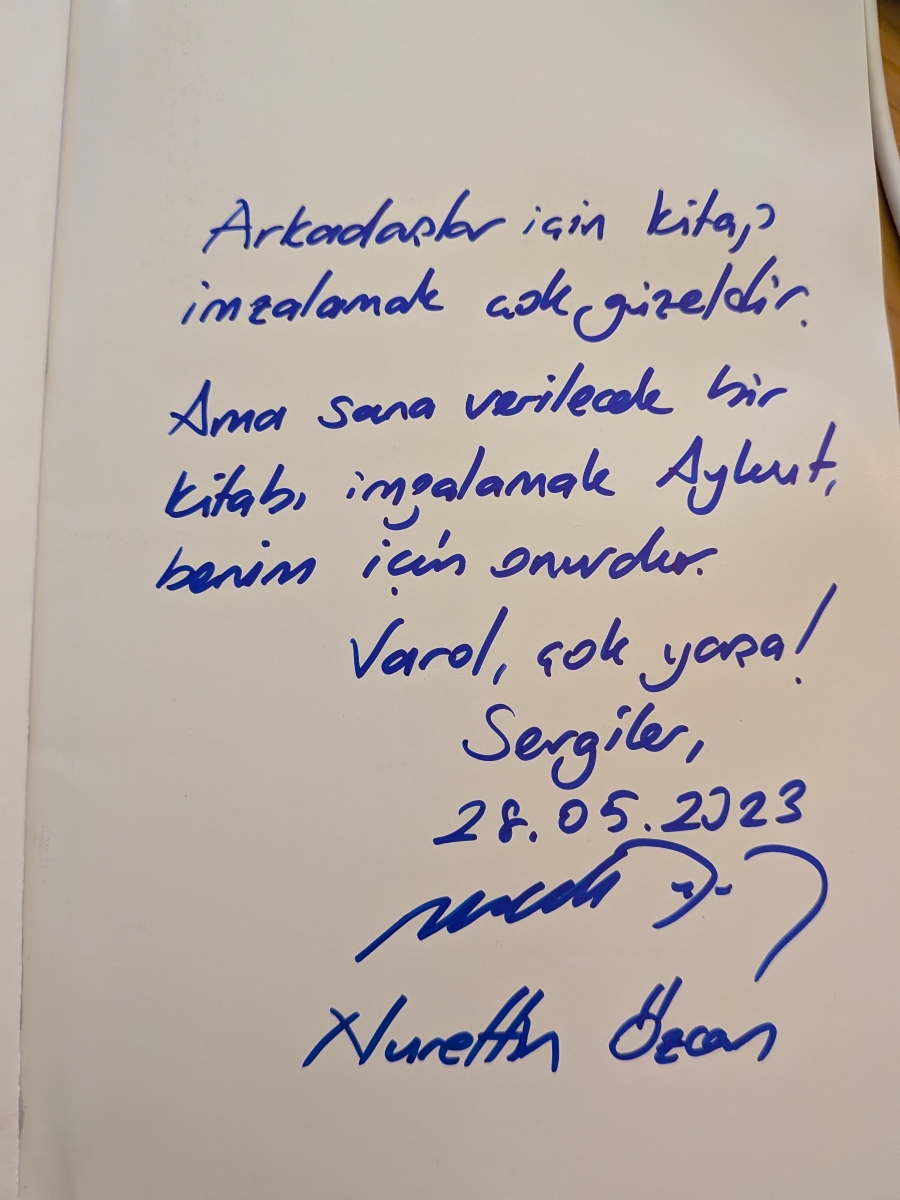 Arkadaşlar için kitap
imzalamak çok güzeldir.
Ama sana verilecek bir
kitabı imzalamak Aykut,
benim için onurdur.
Varol, çok yaşa!
Sevgiler,
28.05.2023
Nurettin Özcan